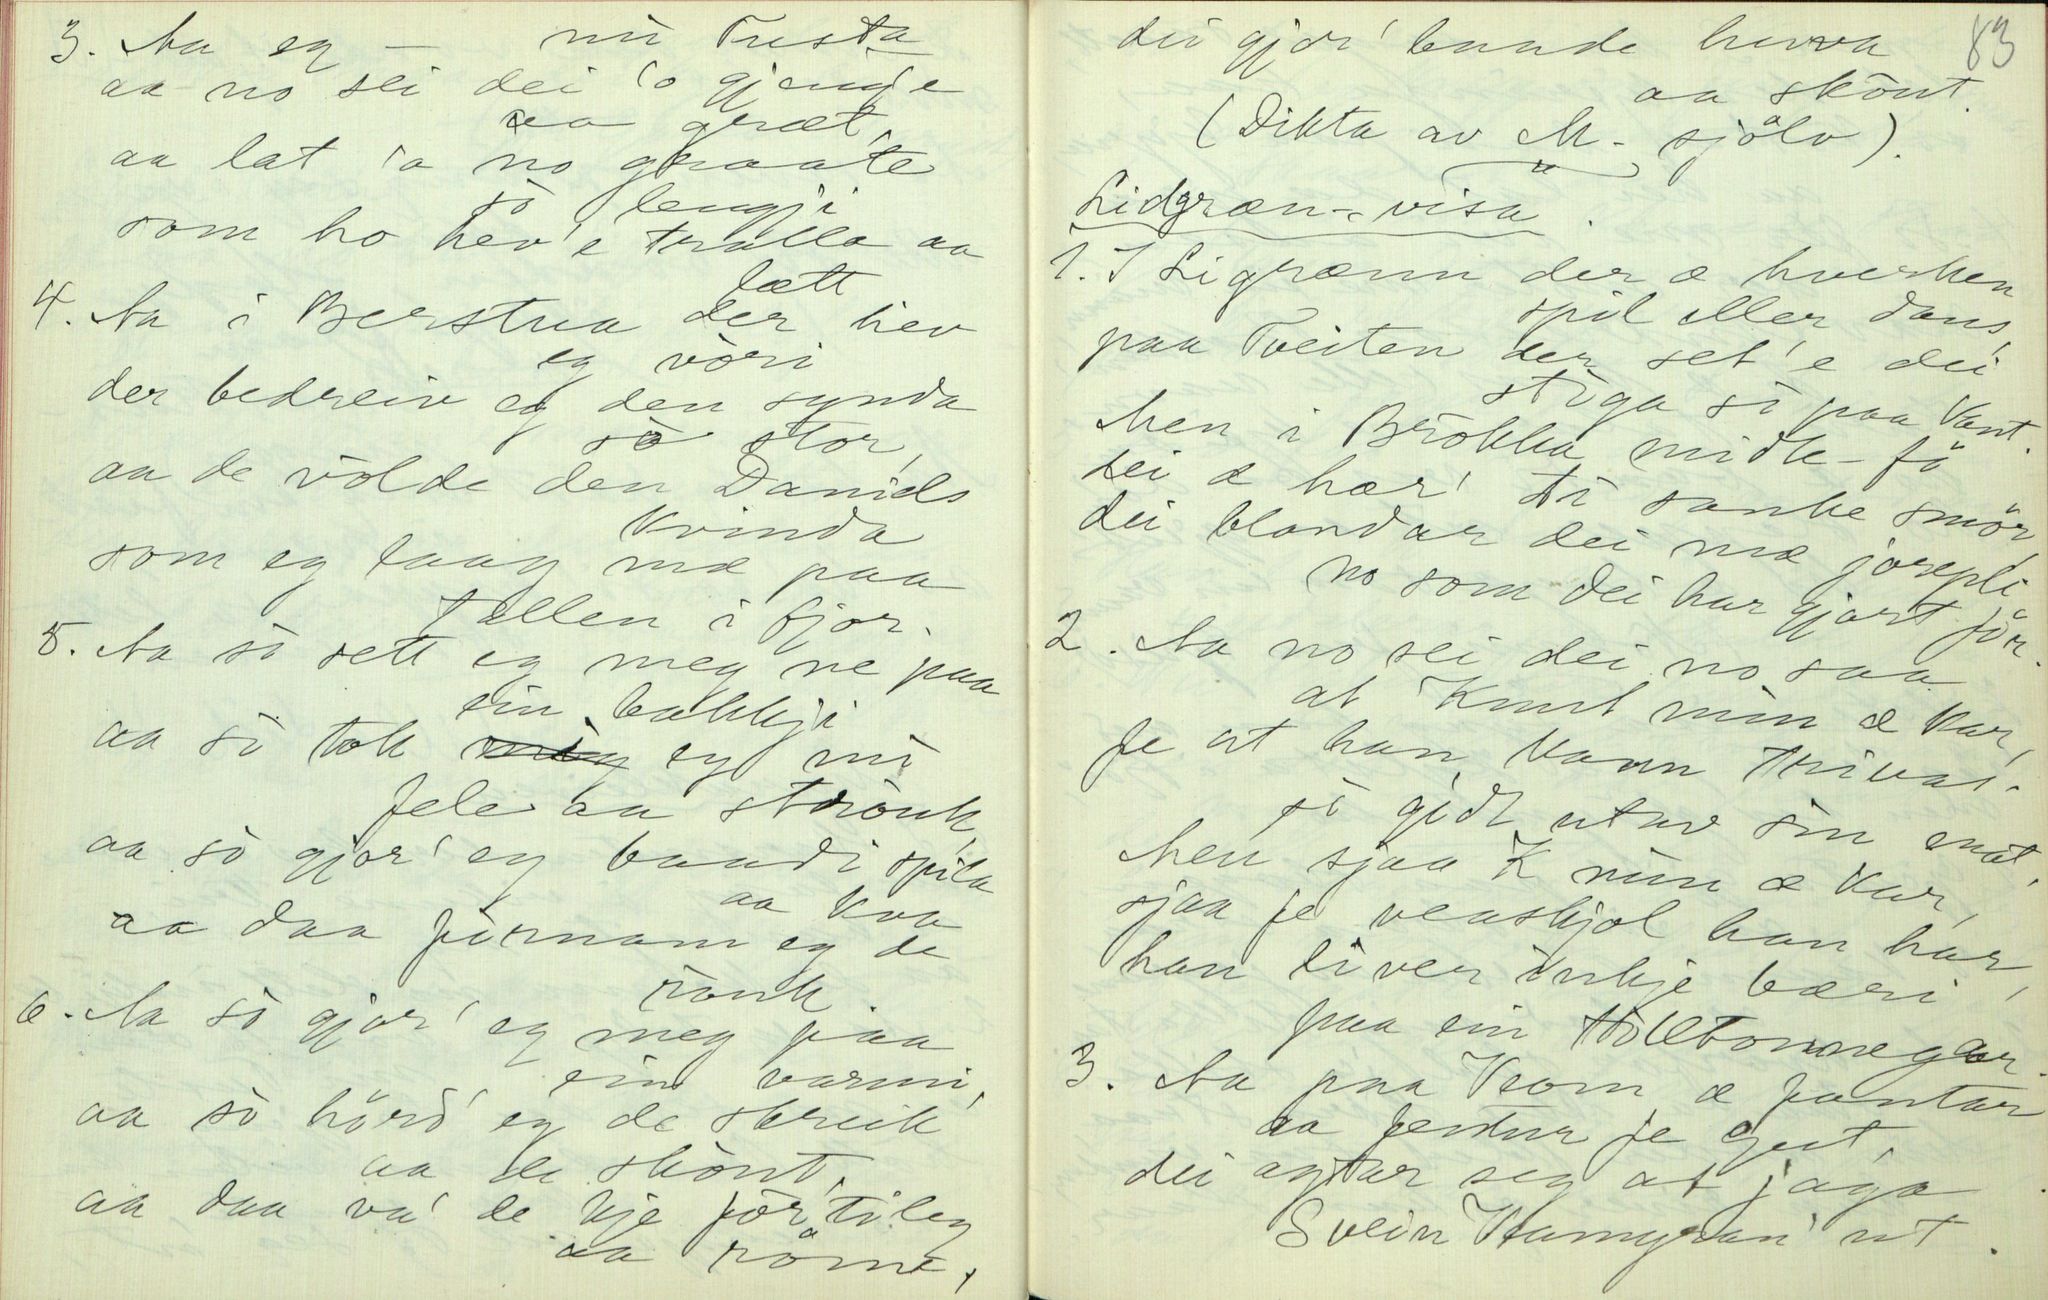 3. Aa eg — mi Trusta
aa no sei dei 'o gjenge
aa græt,
aa lat 'a no graate
så lengji
som ho hev'e tralla aa
lætt
4. Aa i Berstua der hev
eg vòri
der bedreiv eg den synda
sò stor,
aa de volde den Daniels
Kvinda
som eg laag mæ paa
tallen i fjor.
5. Aa sò sett eg meg ne paa
ein bakkji
aa sò tok eg mi
fele aa strauk,
aa sò gjor' eg baadi spila
aa kva
aa daa fornam eg de
rauk.
6. Aa sò gjor' eg meg paa
ein varmi,
aa sò hörd' eg de skreik
aa de skönt,
aa daa va' de kje for tileg
aa röme,
dei gjor' baade
aa skönt.
(Dikta av M. sjölv).
83
Lidgræn-visa.
1. I Ligrænn der æ hverken
spil eller dans,
paa Tveiten der set'e dei
stiga sò paa Kant.
Men i Brökka midle-fö
dei æ hær' ti sanke smör,
dei blandar dei mæ jorepli
no som dei har gjort för.
2. Aa no sei dei no saa
at Knut min æ kar,
Je at han kann
sò gidt utav sin mat,
Men sjaa K min æ Kar,
sjaa je han har,
han liver inkje bæri
paa ein
3. Aa paa Krom æ fantar
aa fentur je gut,
dei agtar seg at jaga
Svein ut.